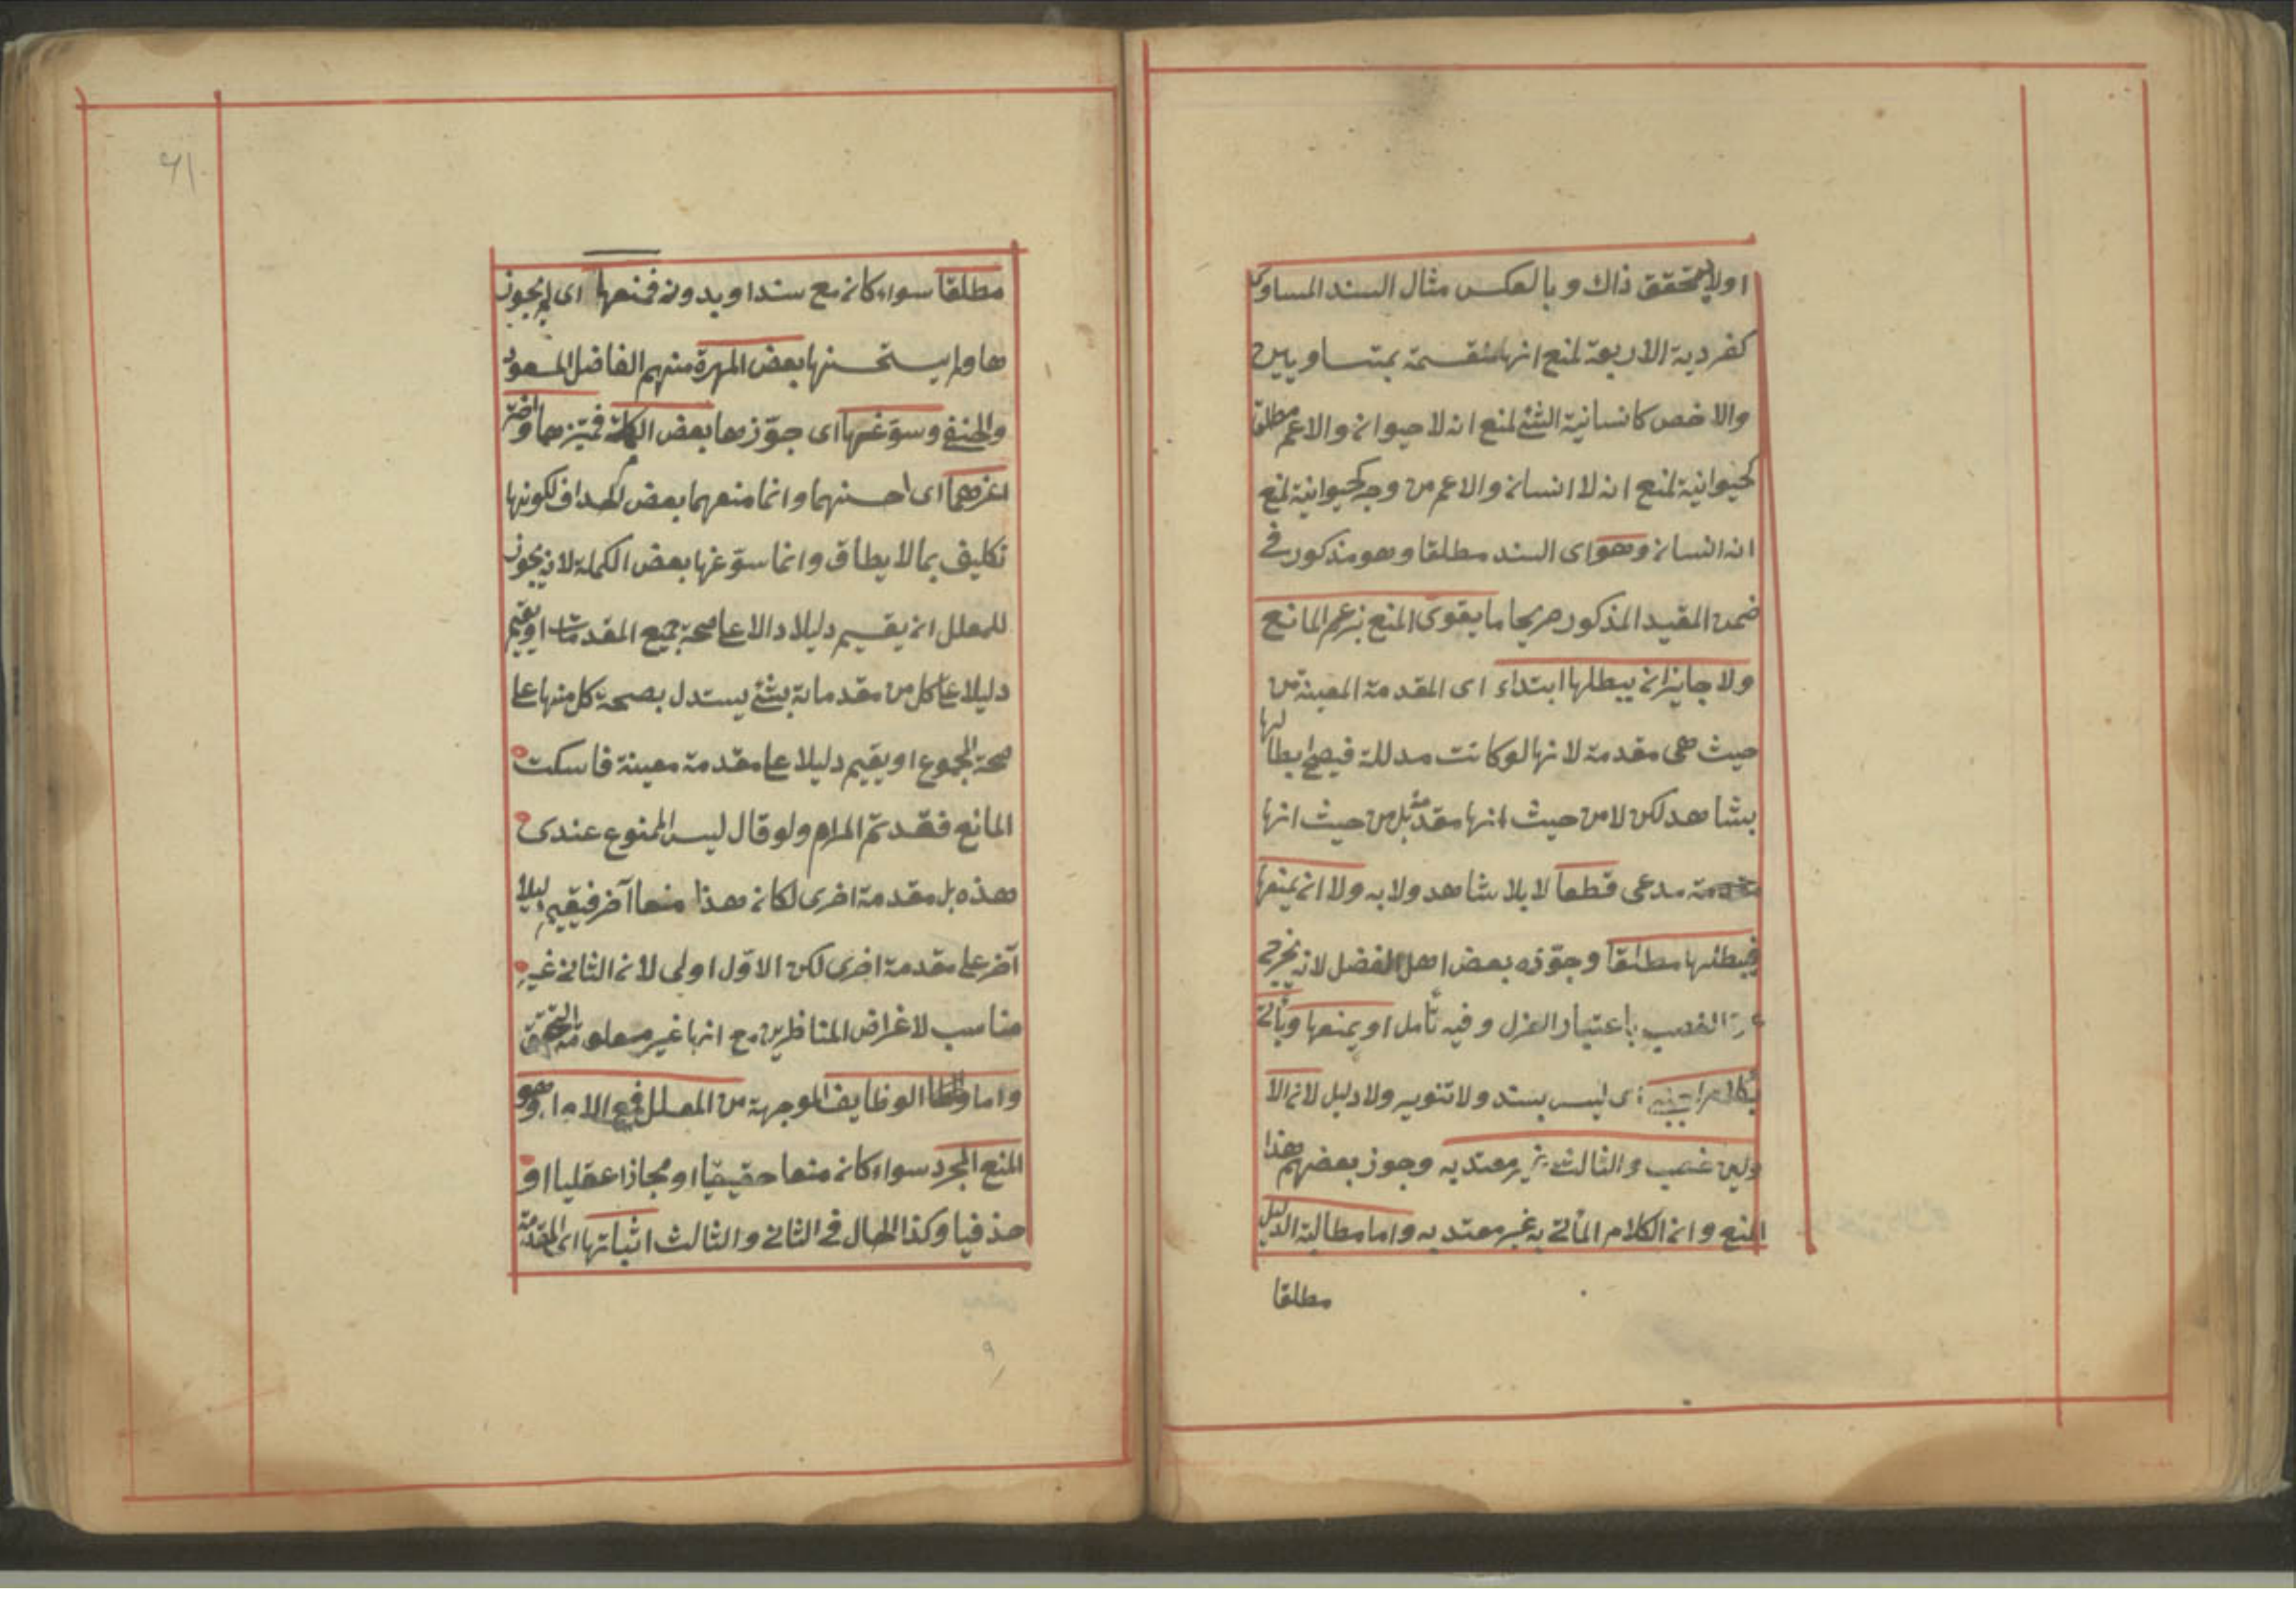 او لا يتحقق ذاك و بالعكس مثال السند المساوى
كفردية الاربعة لمنع انها منقسمة بمتساويين
والاخص كانسانية الشئ لمنع انه لاحيوان والاعم مطلقا
كحيوانية لمنع انه لا انسان والاعم من وجه كحيوانية لمنع
انه انسان وهو اى السند مطلقا وهو مذكور فى
ضمن المقيد المذكور صريحا ما يقوى المنع بزعم المانع
ولا جايز ان يبطلها ابتداء اى المقدمة المعينة من
حيث هى مقدمة لانها لو كانت مدللة فيصح ابطالها
بشاهد لكن لا من حيث انها مقدمة بل من حيث انها
مدعى قطعا لا بلا شاهد ولا به ولا ان يمنعها
فيبطلها مطلقا وجوّزه بعض اهل الفضل لانه يخرج
الغصب باعتبار العزل و فيه تأمل او يمنعها ويأتى
بكلام اجنبى اى ليس بسند ولا تنوير ولا دليل لان الا
ولين غصب والثالث غير معتد به وجوز بعضهم هذا
المنع وان الكلام المأتى به غير معتد به واما مطالبة الدليل
مطلقا
٦١
مطلقا سواء كان مع سند او بدونه فمنعها اى لم يجوز
ها ولم يستحسنها بعض المهرة منهم الفاضل المسعود
والحنفى وسوّغها اى جوّزها بعض الكملة فميّزهما واختر
اعزهما اى احسنهما وانما منعهما بعض لكونها
تكليف بما لا يطاق وانما سوّغها بعض الكملة لانه يجوز
للمعلل ان يقيم دليلا دالا على صحة جميع المقدمات او يقيم
دليلا على كل من مقدماته بشئ يستدل بصحة كل منها على
صحة المجموع او يقيم دليلا على مقدمة معينة فاسكت
المانع فقد تم المرام ولو قال ليس الممنوع عندى
هذه بل مقدمة اخرى لكان هذا منعا آخر فيقيم دليلا
آخر على مقدمة اخرى لكن الاوّل اولى لان الثانى غير
مناسب لاغراض المناظرين مع انها غير معلومة التحقق
واما الوظايف الموجهة من المعلل وهو
المنع المجرد سواء كان منعا حقيقيا او مجازا عقليا او
حذفيا وكذا الحال فى الثانى والثالث اثباتها اى المقدمة
٩